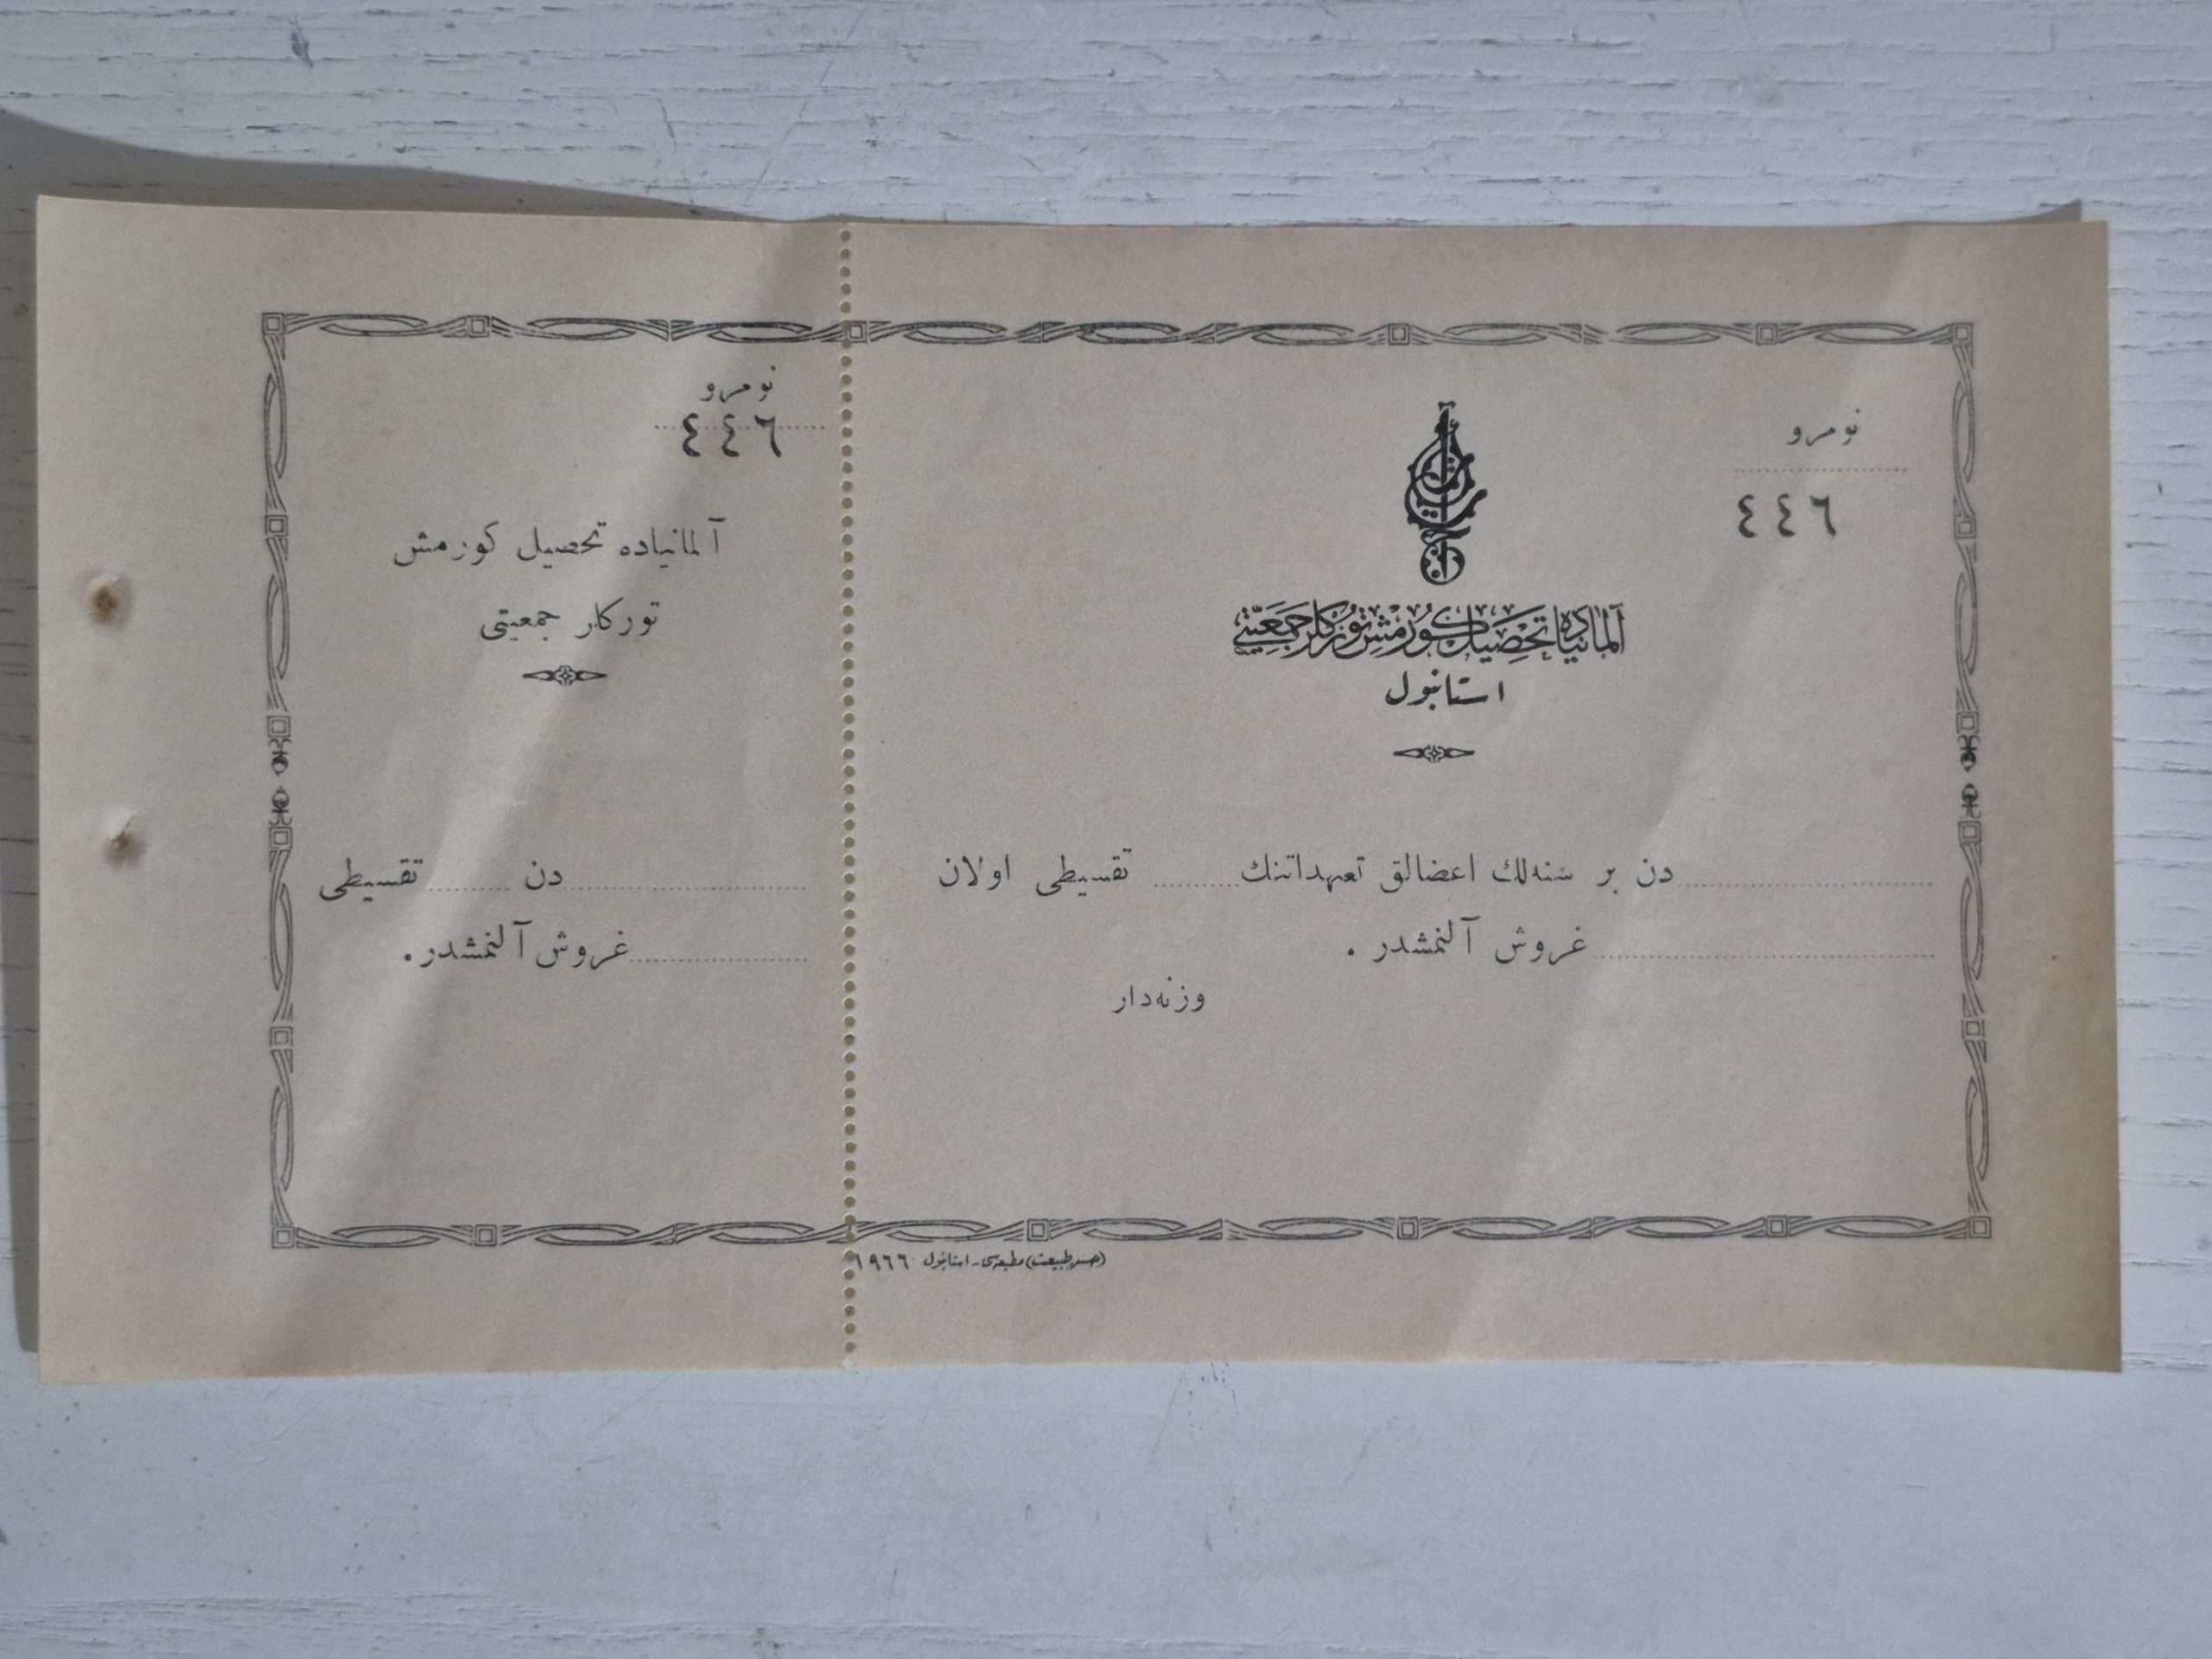 نومرو
٤٤٦
آلمانیاده تحصیل کورمش تورکلر جمعیتی
استانبول
دن بر سنه‌لك اعضالق تعهداتنك ........ تقسیطی اولان
غروش آلنمشدر .
وزنه‌دار
نومرو
٤٤٦
آلمانیاده تحصیل کورمش
تورکلر جمعیتی
دن ........ تقسیطی
غروش آلنمشدر .
مطبعه‌سی - استانبول ١٩٦٦